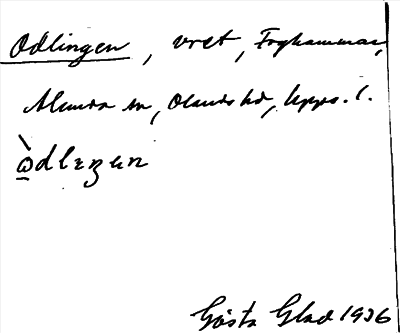 Odlingen, vret, Froghammar,
Almunge sn, Olands hd, Upps. l.
ὼdlεȥεn
Gösta Glad 1936